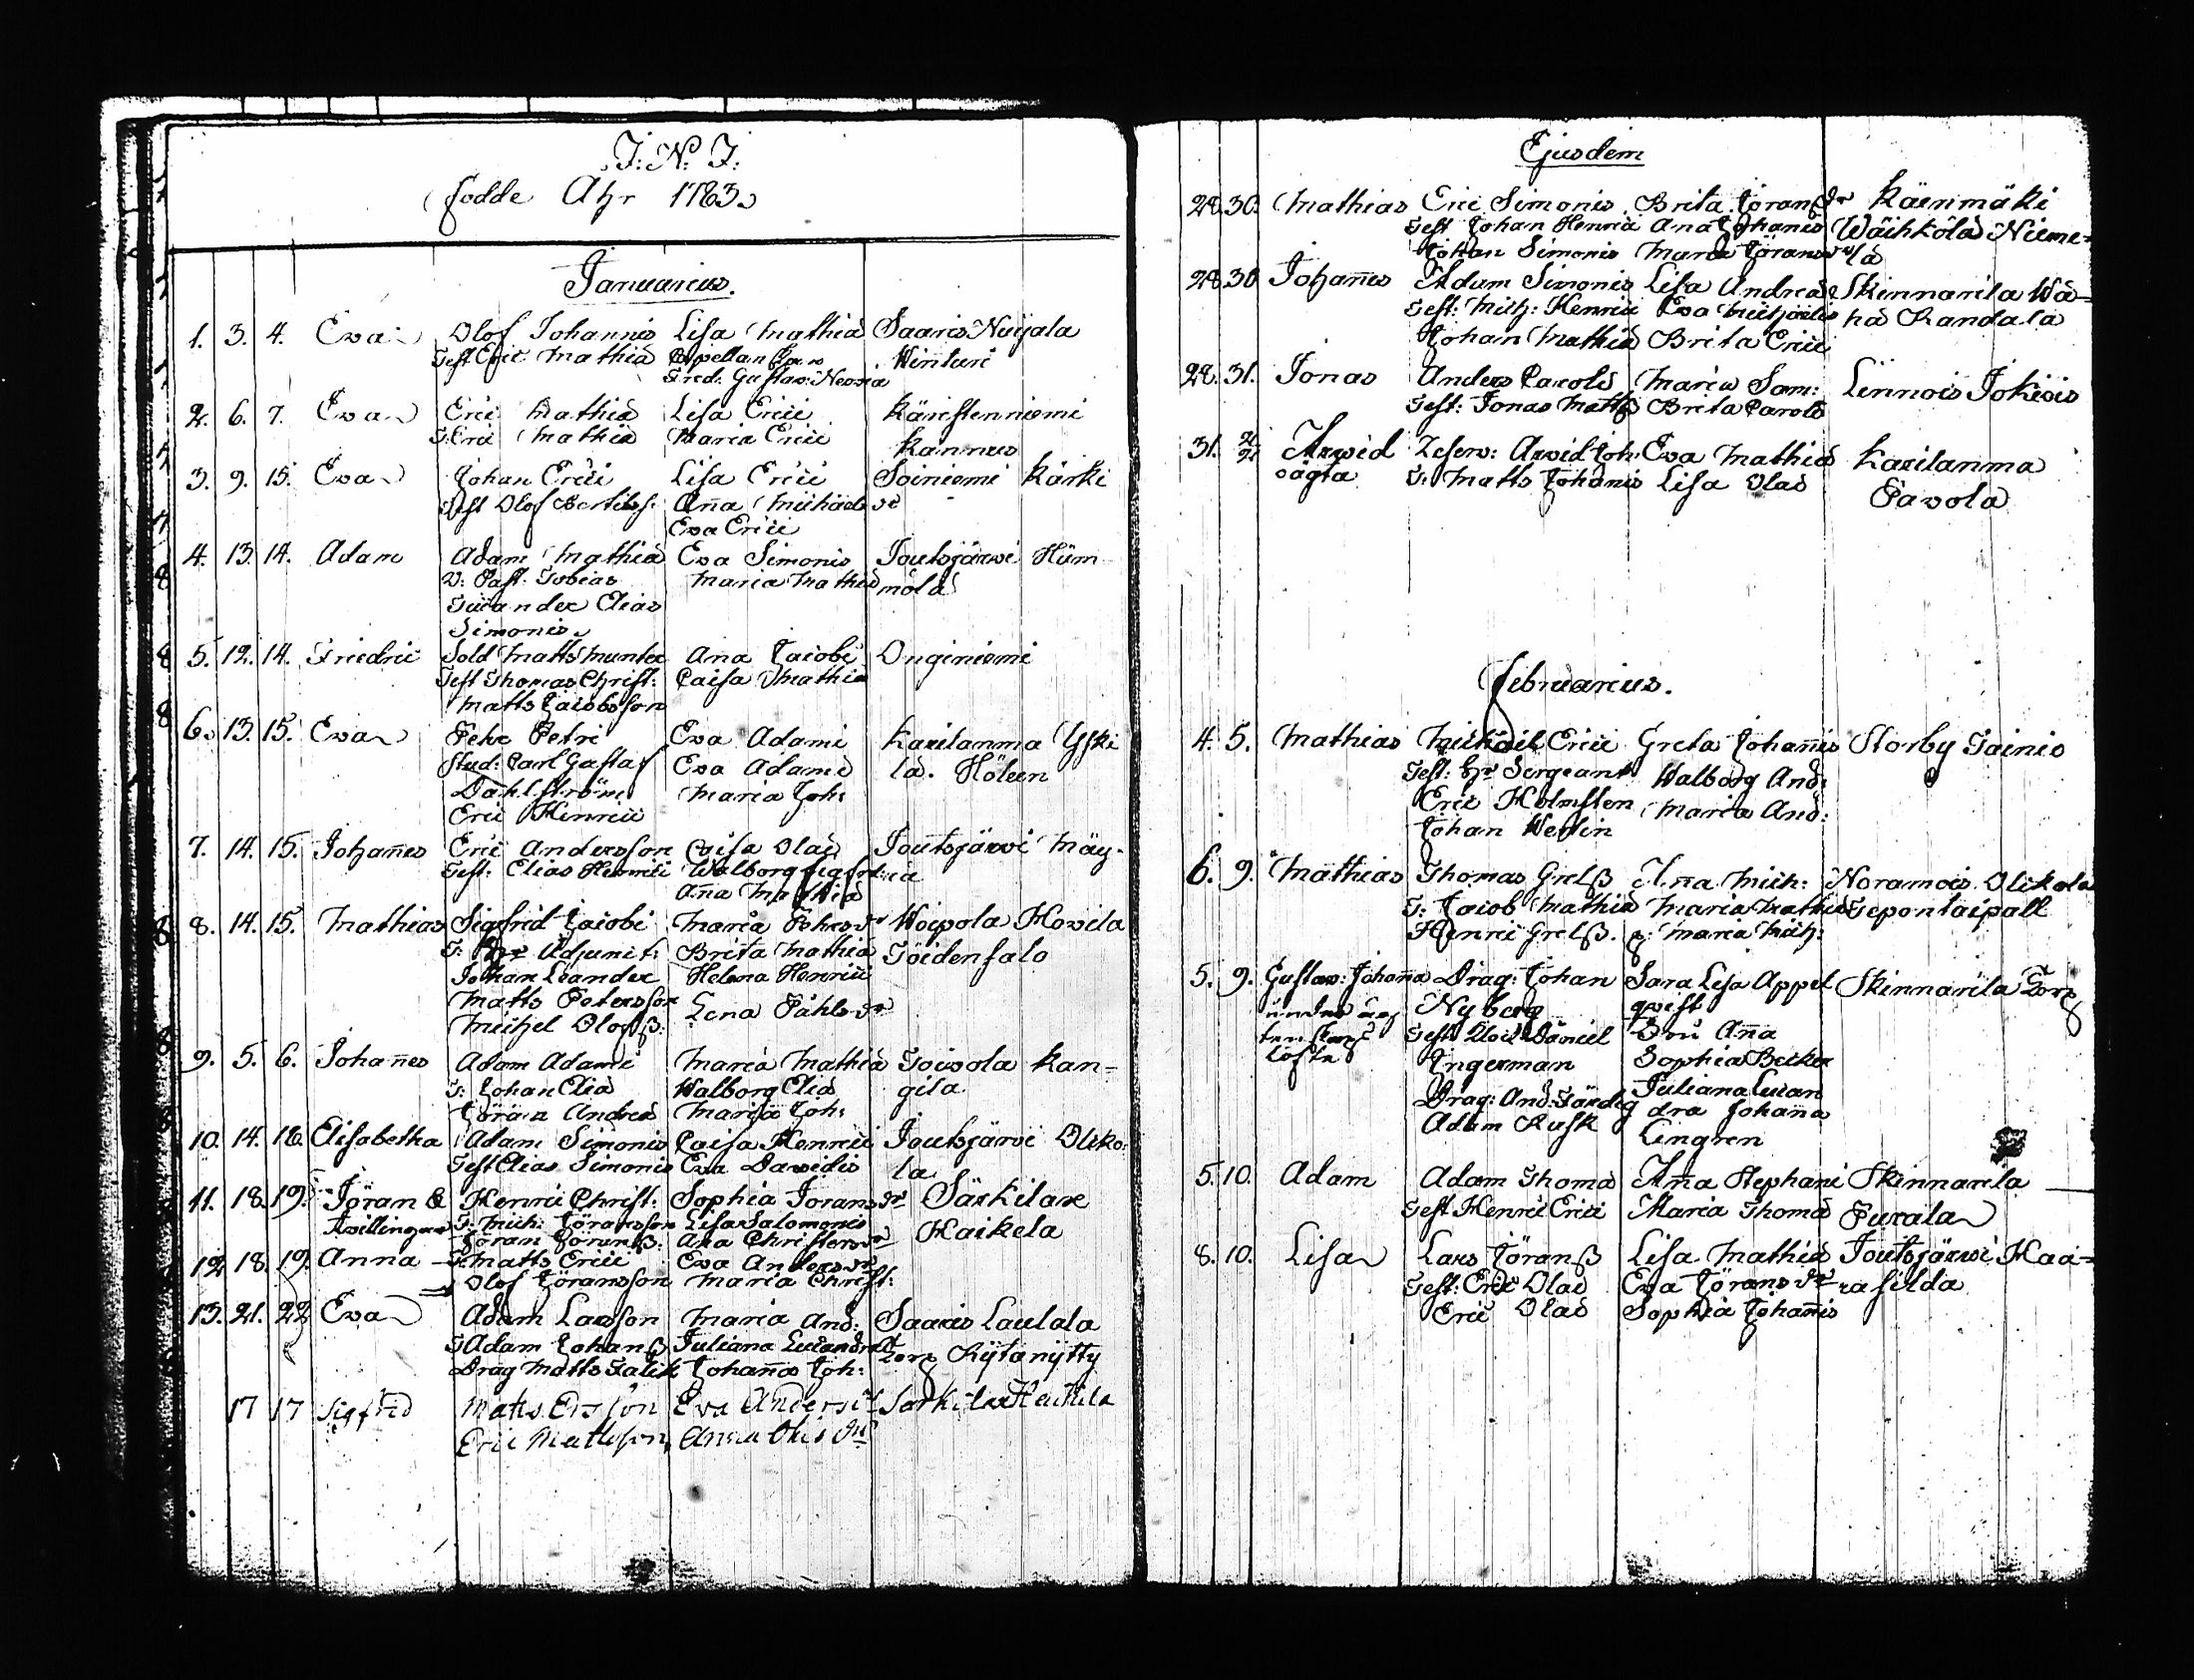 J: N: J:
födde Åhr 1783
Januarius.
1. 3. 4. Eva Olof Johannis Lisa Mathiæ Saaris Nuijala
Test Eric Mathiæ Capellan
Fred: Gustav:
2. 6. 7. Eva Eric Mathiæ Lisa Erici
T: Eric Mathiæ Maria Erici
3. 9. 15. Eva Johan Erici Lisa Erici Soiniemi Kärki
Test Olof Bertilss: Aña Michaels dr
Eva Erici
4. 13. 14. Adam Adam Mathiæ Eva Simonis Joutsjärwi Hüm
V: Past. Tobias Maria Mathiæ mölä
Elias
Simonis
5. 12. 14. Friedric Sold Matts Munter Ana Jacobi Onginiemi
Test Thomas Christ: Caisa Mathiæ
Matts Jacobsson
6. 13. 15. Eva Petri Eva Adami Karilanma Yski
Stud: Carl Gustaf Eva Adami lä. Hölsen
Dahlström Maria Joh:
Eric Henrici
7. 14. 15. Johañes Eric Andersson Caisa Olai Joutsjärwi Mäy-
Test: Elias Henrici Walborg Sigfr: riä
Aña Mathiæ
8. 14. 15. Mathias Sigfrid Jacobi Maria Woipola Howila
T: Hr Adjunct: Brita Mathiæ Töidenfalo
Johan Leander Helena Henrici
Matts Petersson Lena Påhls dr
Michel Olofß:
9. 5. 6. Johañes Adam Adami Maria Mathiæ Toivola Kan-
T: Johan Eliæ Walborg Eliæ gila
Jöran Andreæ Maria Joh:
10. 14. 16. Elisabetha Adam Simonis Caisa Henrici Joutsjärwi Oliko:
Test Elias Simonis Eva Davidis la
11. 18. 19. Jöran & Henric Christ: Sophia Jörans dr Särkilax
Twillingar T: Mich: Jöransson Lisa Salomonis Haikela
Jöran Jöranß: Aña Christers dr
12 18. 19. Anna T: Matts Erici Eva Anders dr
Olof Jöransson Maria Christ:
13. 21. 22 Eva Adam Larsson Maria And: Saaris Laulala
T: Adam Johanß Juliana Torp Kÿtönÿtty
Drag Matts Johanna Joh:
17 17 Sigfrid Matts Ersson Eva Anders dr Särkilax Heikila
Eric Mattsson, Anna dr
Ejusdem
28. 30. Mathias Eric Simonis Brita Jörans dr Käenmäki
Test Johan Henrici Ana Johanis Wäihkölä Nieme-
Johan Simonis Maria Jörans dr lä
28. 30 Johañes Adam Simonis Lisa Andreæ Skinnarila Wä-
Test: Mich: Henrici Eva Michaelis hä Randala
Johan Mathiæ Brita Erici
28. 31. Jonas Anders Caroli Maria Sam: Lennois Jokiois
Test: Jonas Mattß Brita Caroli
31. Arwid Arwid Joh: Eva Mathiæ Karilanma
oägta T: Matts Johanis Lisa Olai Pavola
Februarius.
4. 5. Mathias Michael Erici Greta Johañis Storby Tainio
Test: Hr Sergeant Walborg And:
Eric Holmsten Maria And:
Johan
6. 9. Mathias Thomas Grelß Aña Mich: Noramois Olikola
T: Jacob Mathiæ Maria Mathiæ
Henric Grelß. P: Maria Mich:
5. 9. Gustav: Johaña Drag: Johan Sara Lisa Appel Skinnarila Torp
Nyberg qvist
Test Daniel Fru Aña
Ingerman Sophia Becker
Drag: And: Färdig Juliana
Adam Rusk dra Johana
Lingren
5. 10. Adam Adam Thomæ Aña Stephani Skinnarila
Test Henric Erici Maria Thomæ Purala
8. 10. Lisa Lars Jöranß Lisa Mathiæ Joutsjärwi Haa-
Test: Eric Olai Eva Jörans dr rasilda
Eric Olai Sophia Johañis